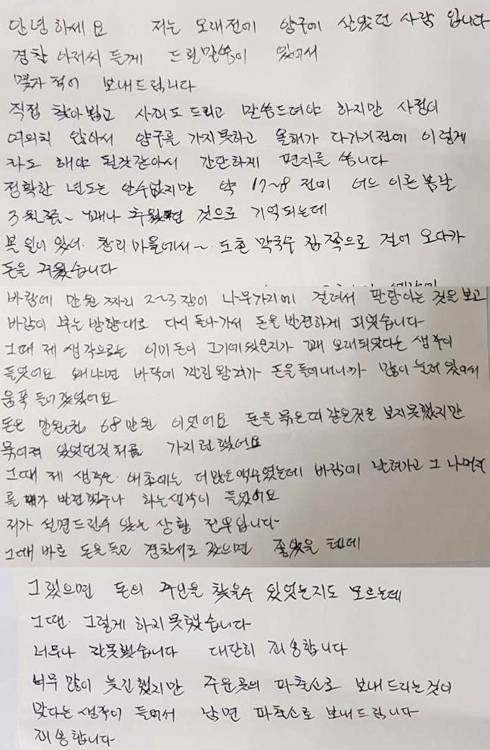 안녕하세요 저는 오래전에 양구에 살았던 사람 입니다
경찰 아저씨 들께 드릴말씀이 있어서
몇자 적어 보내드립니다
직접 찾아뵙고 사죄도 드리고 말씀드려야 하지만 사정이
여의치 않아서 양구를 가지못하고 올해가 다가기전에 이렇게
라도 해야 될것같아서 간단하게 편지를 씁니다
정확한 년도는 알수없지만 약 17~8 전에 어느 이른 봄날
3월쯤~ 꽤나 추웠던 것으로 기억되는데
볼 일이 있어 한리 마을에서~ 도촌 막국수 집 쪽으로 걸어 오다가
돈을 주웠습니다
바람에 만원 짜리 2~3장이 나무가지에 걸려서 팔랑이는 것을 보고
바람이 부는 방향대로 다시 돌아가서 돈을 발견하게 되었습니다
그때 제 생각으로는 이미 돈이 그기에 있은지가 꽤 오래되었다는 생각이
들었어요 왜냐면 바닥에 깔린 왕겨가 돈을 들어내니까 많이 눌려 있어서
움푹 들어갔었어요
돈은 만원권 68만원 이었어요 돈을 묶은 띠 같은것은 보지못했지만
묶여져 있었던것처럼 가지런 했어요
그때 제 생각은 애초에는 더 많은 액수였는데 바람에 날려가고 그 나머지
를 내가 발견했구나 하는 생각이 들었어요
제가 설명드릴수 있는 상황 전부입니다
그때 바로 돈을 들고 경찰서로 갔으면 좋았을 텐데
그랬으면 돈의 주인을 찾을수 있었는지도 모르는데
그땐 그렇게 하지못했습니다
너무나 잘못했습니다 대단히 죄송합니다
너무 많이 늦긴했지만 주운곳의 파출소로 보내드리는것이
맞다는 생각이 들어서 남면 파출소로 보내드립니다
죄송합니다